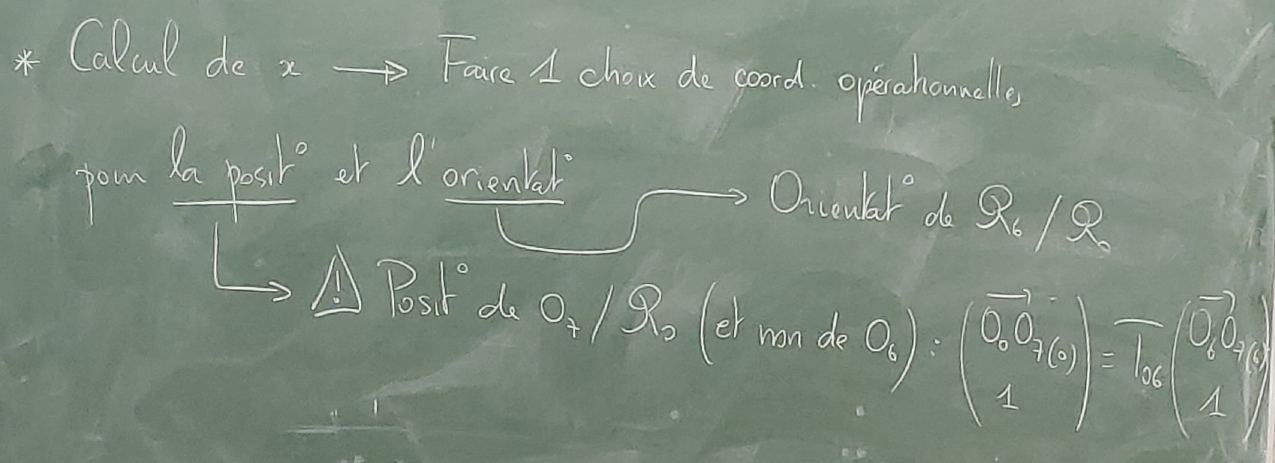 * Calcul de x → Faire 1 choix de coord. opérationnelles
pour la posit° et l'orientat°
→ Orientat° de R₆ / R₀
→ ⚠ Posit° de O₇ / R₀ (et non de O₆) : (O₀O₇₍₀₎ 1) = T₀₆ (O₆O₇₍₆₎ 1)